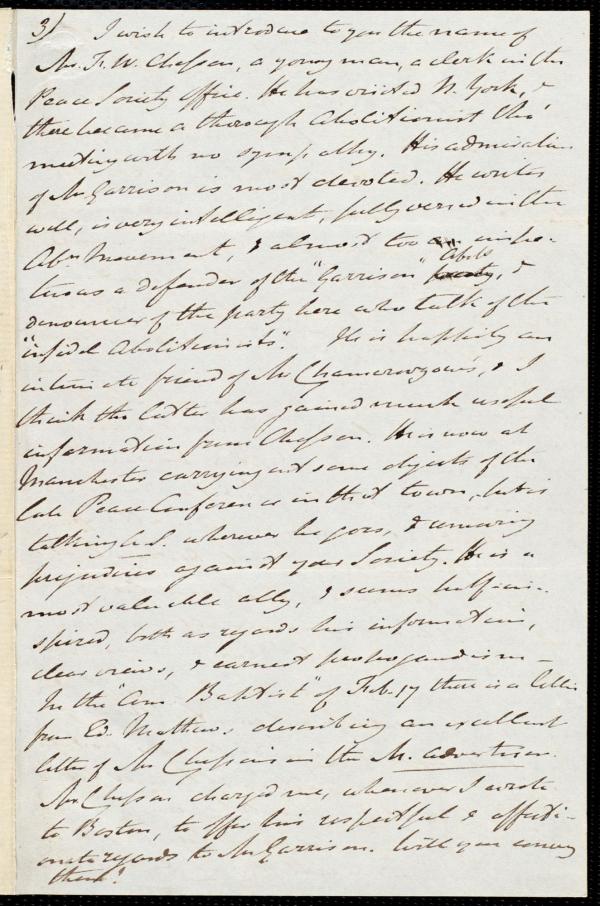 3) I wish to introduce to you the name of
Mr. F. W. Chesson, a young man, a clerk in the
Peace Society Office. He has visited N. York, &
there became a thorough Abolitionist tho'
meeting with no sympathy. His admiration
of Mr Garrison is most devoted. He writes
well, is very intelligent, fully versed in the
Aby. Movement, & almost too impe-
tuous a defender of the "Garrison" Abols, &
denouncer of the party here who talk of the
"infidel Abolitionists". He is happily an
intimate friend of Mr Chamerovzow's, & I
think the latter has gained much useful
information from Chesson. He is now at
Manchester carrying out some objects of the
late Peace Conference in that town, but is
talking A.S. wherever he goes, & removing
prejudices against your Society. He is a
most valuable ally, & seems half in-
spired, both as regards his information,
clear views, & earnest propagandism —
In the "Am. Baptist" of Feb. 17 there is a letter
from Ed. Mathews describing an excellent
letter of Mr Chessons in the M. Advertiser.
Mr Chesson charged me, whenever I wrote
to Boston, to offer his respectful & affecti-
onate regards to Mr Garrison. Will you convey
them?